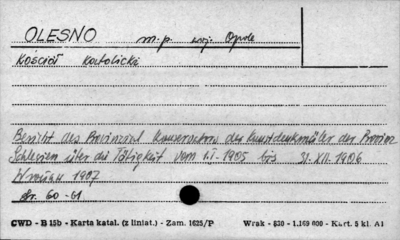 OLESNO m.p. woj. Opole
Kościół katolicki
Bericht des Provinzial Konservators der Kunstdenkmäler der Provinz
Schlesien über die Tätigkeit vom 1.I-1905 bis 31.XII.1906
Wrocław 1907
str. 60-61
CWD - B 15b - Karta katal. (z liniat.) - Zam. 1625/P Wrak - 830 - 1.169 000 - Kart. 5 kl. A1